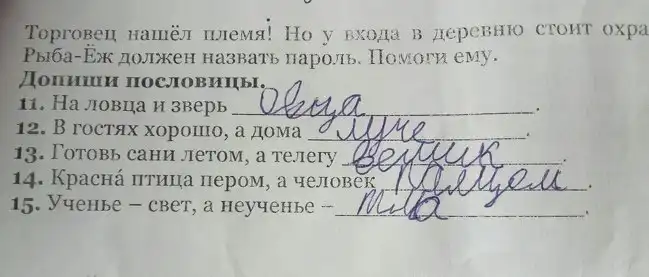 Торговец нашёл племя! Но у входа в деревню стоит охра
Рыба-Ёж должен назвать пароль. Помоги ему.
Допиши пословицы.
11. На ловца и зверь Овца.
12. В гостях хорошо, а дома луче.
13. Готовь сани летом, а телегу.
14. Красна́ птица пером, а человек.
15. Ученье – свет, а неученье – тма.